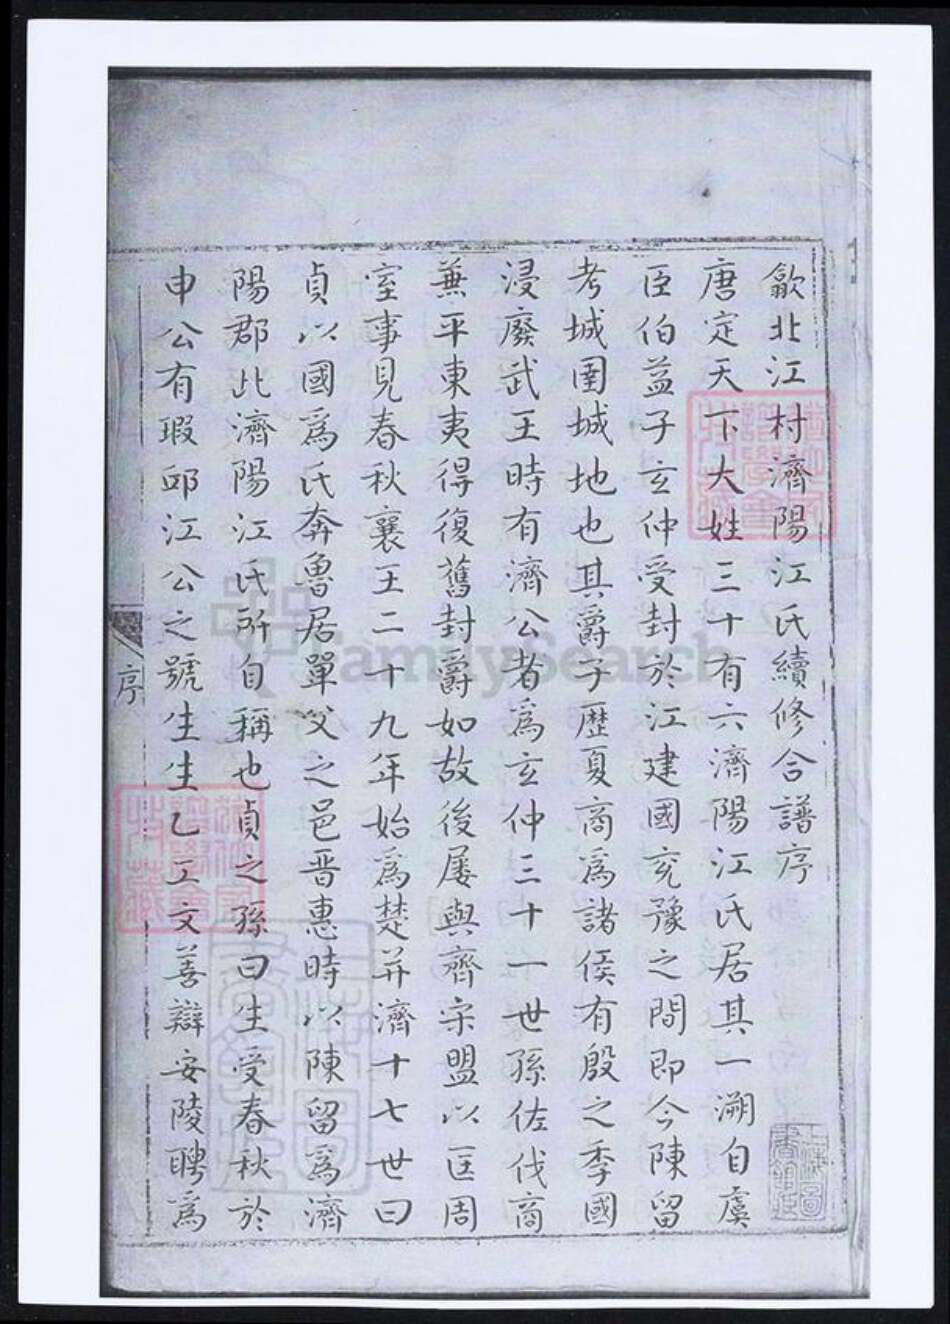 歙北江村濟陽江氏續修合譜序
唐定天下大姓三十有六濟陽江氏居其一溯自虞
臣伯益子玄仲受封於江建國兖豫之間即今陳留
考城圉城地也其爵子歷夏商為諸侯有殷之季國
浸廢武王時有濟公者為玄仲三十一世孫佐伐商
兼平東夷得復舊封爵如故後屢與齊宋盟以匡周
室事見春秋襄王二十九年始為楚并濟十七世曰
貞以國為氏奔魯居單父之邑晋惠時以陳留為濟
陽郡此濟陽江氏所自稱也貞之孫曰生受春秋於
申公有瑕邱江公之號生生乙工文善辯安陵聘為
序
FamilySearch